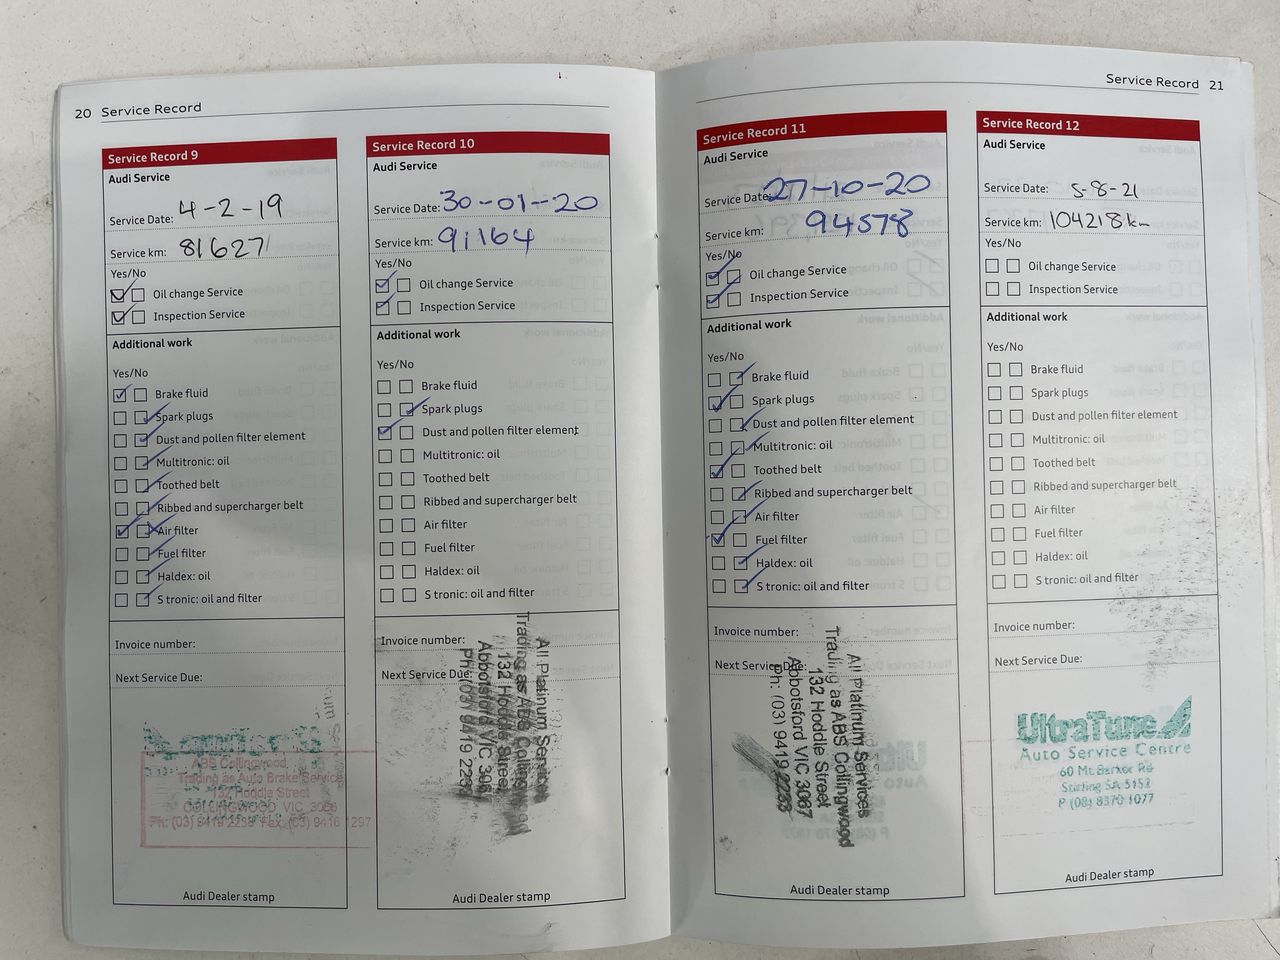 20 Service Record
Service Record 9
Audi Service
Service Date: 4-2-19
Service km: 81627
Yes/No
Oil change Service
Inspection Service
Additional work
Yes/No
Brake fluid
Spark plugs
Dust and pollen filter element
Multitronic: oil
Toothed belt
Ribbed and supercharger belt
Air filter
Fuel filter
Haldex: oil
S tronic: oil and filter
Invoice number:
Next Service Due:
ABS Collingwood
Trading as Auto Brake Service
132 Hoddle Street
COLLINGWOOD VIC 3066
Ph: (03) 9419 2233 Fax: (03) 9416 1297
Audi Dealer stamp
Service Record 10
Audi Service
Service Date: 30-01-20
Service km: 91164
Yes/No
Oil change Service
Inspection Service
Additional work
Yes/No
Brake fluid
Spark plugs
Dust and pollen filter element
Multitronic: oil
Toothed belt
Ribbed and supercharger belt
Air filter
Fuel filter
Haldex: oil
S tronic: oil and filter
Invoice number:
Next Service Due:
All Platinum Services
Trading as ABS Collingwood
132 Hoddle Street
Abbotsford VIC 3067
Ph: (03) 9419 2233
Audi Dealer stamp
Service Record 21
Service Record 11
Audi Service
Service Date: 27-10-20
Service km: 94578
Yes/No
Oil change Service
Inspection Service
Additional work
Yes/No
Brake fluid
Spark plugs
Dust and pollen filter element
Multitronic: oil
Toothed belt
Ribbed and supercharger belt
Air filter
Fuel filter
Haldex: oil
S tronic: oil and filter
Invoice number:
Next Service Due:
All Platinum Services
Trading as ABS Collingwood
132 Hoddle Street
Abbotsford VIC 3067
Ph: (03) 9419 2233
Audi Dealer stamp
Service Record 12
Audi Service
Service Date: 5-8-21
Service km: 104218km
Yes/No
Oil change Service
Inspection Service
Additional work
Yes/No
Brake fluid
Spark plugs
Dust and pollen filter element
Multitronic: oil
Toothed belt
Ribbed and supercharger belt
Air filter
Fuel filter
Haldex: oil
S tronic: oil and filter
Invoice number:
Next Service Due:
UltraTune
Auto Service Centre
60 Mt Barker Rd
Stirling SA 5152
P (08) 8370 1077
Audi Dealer stamp